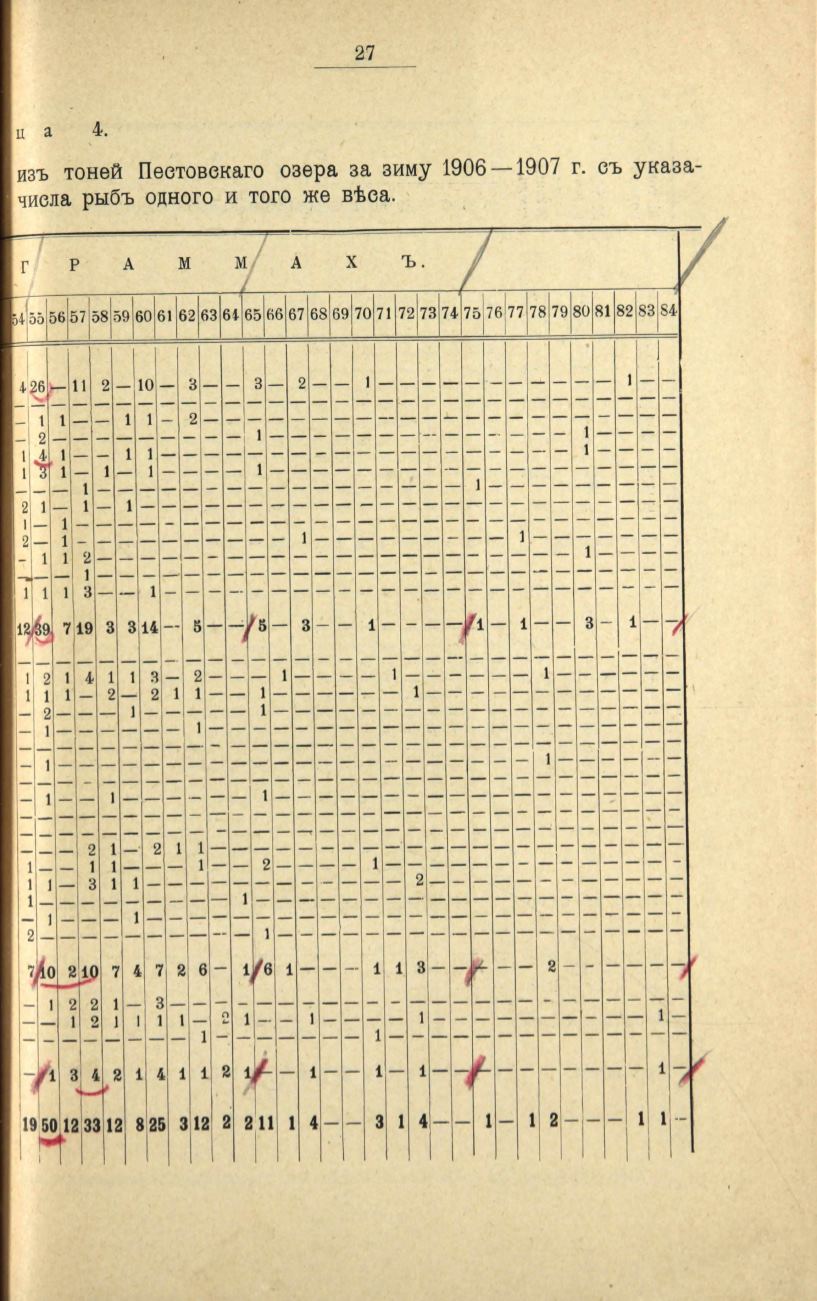 27
ц а 4.
изъ тоней Пестовскаго озера за зиму 1906—1907 г. съ указа-
числа рыбъ одного и того же вѣса.
Г Р А М М А Х Ъ.
54 55 56 57 58 59 60 61 62 63 64 65 66 67 68 69 70 71 72 73 74 75 76 77 78 79 80 81 82 83 84
4 26 — 11 2 — 10 — 3 — — 3 — 2 — — 1 — — — — — — — — — — — 1 — —
— — — — — — — — — — — — — — — — — — — — — — — — — — — — — — —
— 1 1 — — 1 1 — 2 — — — — — — — — — — — — — — — — — — — — — —
— 2 — — — — — — — — — 1 — — — — — — — — — — — — — — 1 — — — —
1 4 1 — — 1 1 — — — — — — — — — — — — — — — — — — — 1 — — — —
1 3 1 — 1 — 1 — — — — 1 — — — — — — — — — — — — — — — — — — —
— — — 1 — — — — — — — — — — — — — — — — — 1 — — — — — — — — —
2 1 — 1 — 1 — — — — — — — — — — — — — — — — — — — — — — — — —
1 — 1 — — — — — — — — — — — — — — — — — — — — — — — — — — — —
2 — 1 — — — — — — — — — — 1 — — — — — — — — — 1 — — — — — — —
— 1 1 2 — — — — — — — — — — — — — — — — — — — — — — 1 — — — —
— — — 1 — — — — — — — — — — — — — — — — — — — — — — — — — — —
1 1 1 3 — — 1 — — — — — — — — — — — — — — — — — — — — — — — —
12 39 7 19 3 3 14 — 5 — — 5 — 3 — — 1 — — — — 1 — 1 — — 3 — 1 — —
— — — — — — — — — — — — — — — — — — — — — — — — — — — — — — —
1 2 1 4 1 1 3 — 2 — — — 1 — — — — 1 — — — — — — 1 — — — — — —
1 1 1 — 2 — 2 1 1 — — 1 — — — — — — 1 — — — — — — — — — — — —
— 2 — — — 1 — — — — — 1 — — — — — — — — — — — — — — — — — — —
— 1 — — — — — — 1 — — — — — — — — — — — — — — — — — — — — — —
— — — — — — — — — — — — — — — — — — — — — — — — — — — — — — —
— 1 — — — — — — — — — — — — — — — — — — — — — — 1 — — — — — —
— — — — — — — — — — — — — — — — — — — — — — — — — — — — — — —
— 1 — — 1 — — — — — — 1 — — — — — — — — — — — — — — — — — — —
— — — — — — — — — — — — — — — — — — — — — — — — — — — — — — —
— — — — — — — — — — — — — — — — — — — — — — — — — — — — — — —
— — — 2 1 — 2 1 1 — — — — — — — — — — — — — — — — — — — — — —
1 — — 1 1 — — — 1 — — 2 — — — — 1 — — — — — — — — — — — — — —
1 1 — 3 1 1 — — — — — — — — — — — — 2 — — — — — — — — — — — —
1 — — — — — — — — — 1 — — — — — — — — — — — — — — — — — — — —
— 1 — — — 1 — — — — — — — — — — — — — — — — — — — — — — — — —
2 — — — — — — — — — — 1 — — — — — — — — — — — — — — — — — — —
7 10 2 10 7 4 7 2 6 — 1 6 1 — — — 1 1 3 — — — — — 2 — — — — — —
— 1 2 2 1 — 3 — — — — — — — — — — — — — — — — — — — — — — — —
— — 1 2 1 1 1 1 — 2 1 — — 1 — — — — 1 — — — — — — — — — — 1 —
— — — — — — — — 1 — — — — — — — 1 — — — — — — — — — — — — — —
— 1 3 4 2 1 4 1 1 2 1 — — 1 — — 1 — 1 — — — — — — — — — — 1 —
19 50 12 33 12 8 25 3 12 2 2 11 1 4 — — 3 1 4 — — 1 — 1 2 — — — 1 1 —